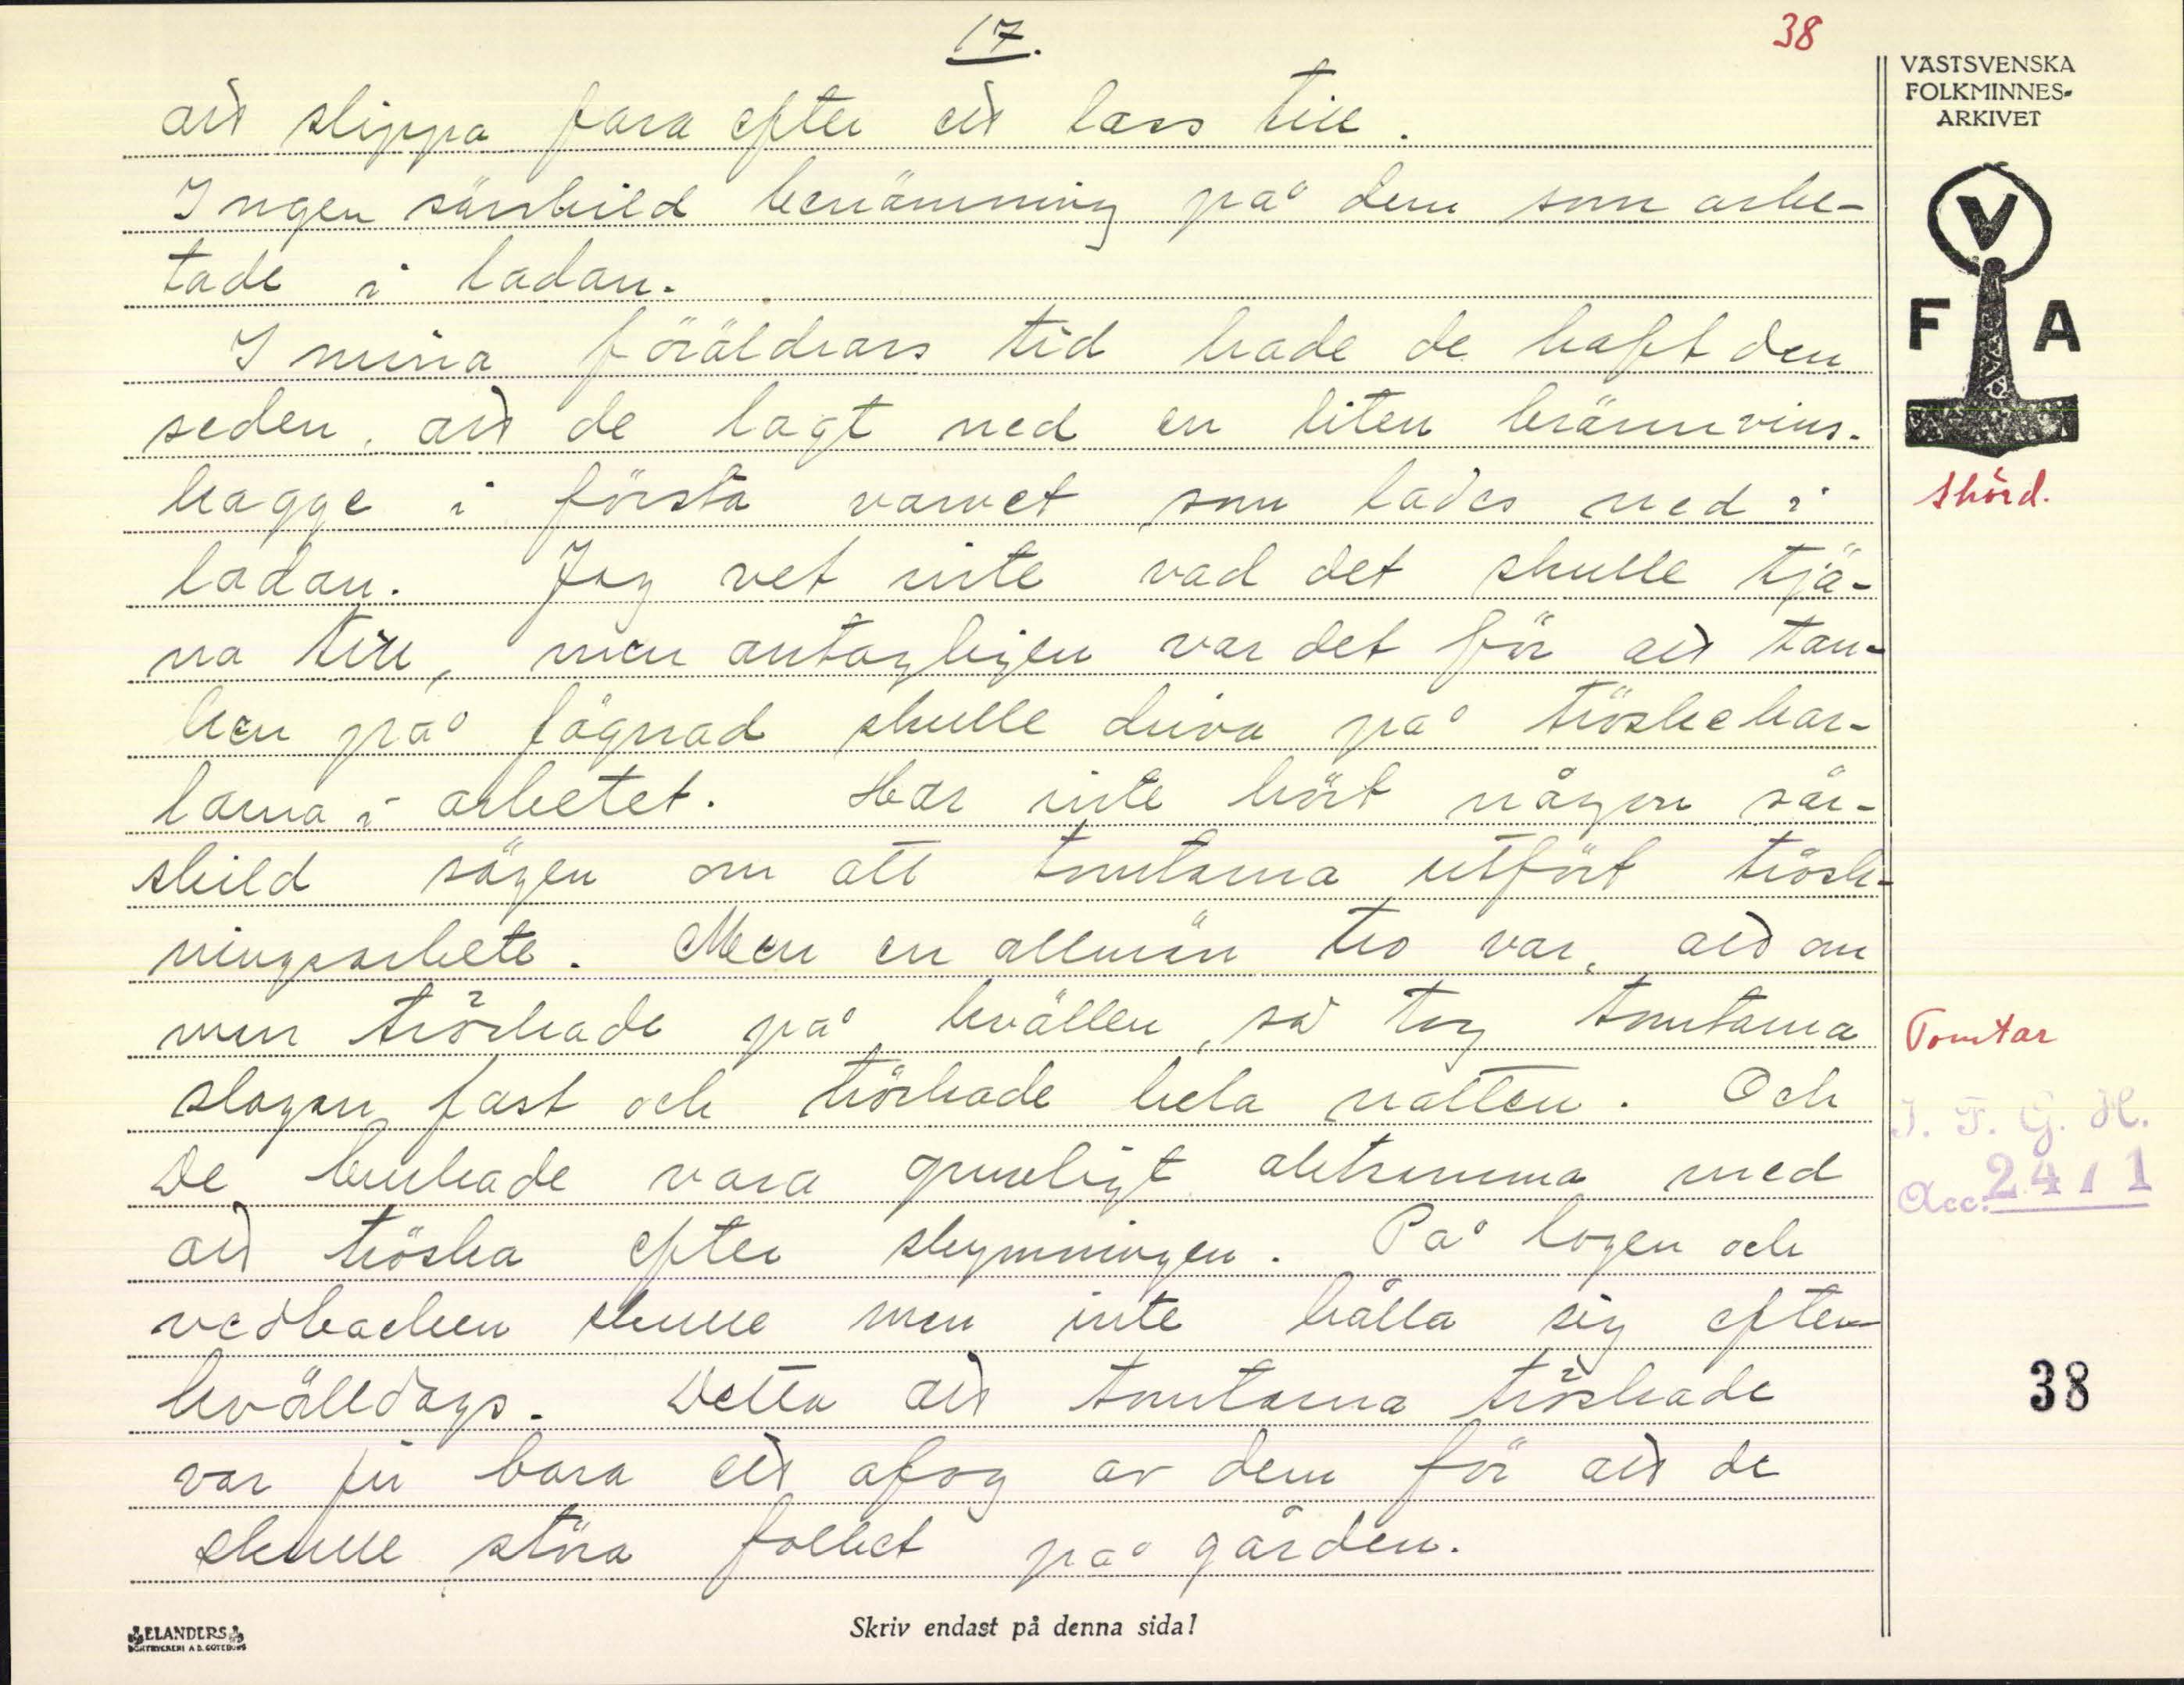 17.
38
att slippa fara efter ett lass till.
Ingen särskild benämning på dem som arbe-
tade i ladan.
I mina föräldrars tid hade de haft den
seden, att de lagt ned en liten brännvins-
kagge i första varvet som lades ned i
ladan. Jag vet inte vad det skulle tjä-
na till, men antagligen var det för att tan-
ken på fägnad skulle driva på tröskekar-
larna i arbetet. Har inte hört någon sär-
skild sägen om att tomtarna utfört trösk-
ningsarbete. Men en allmän tro var, att om
men tröskade på kvällen, så tog tomtarna
slagan fast och tröskade hela natten. Och
De brukade vara gruveligt aktsamma med
att tröska efter skymningen. På logen och
vedbacken skulle men inte hålla sig efter
kvälldags. Detta att tomtarna tröskade
var ju bara ett afog av dem för att de
skulle störa folket på gården.
VÄSTSVENSKA
FOLKMINNES-
ARKIVET
V
F A
Skörd.
Tomtar
I. F. G. H.
Acc. 2411
38
ELANDERS
BOKTRYCKERI A.B. GÖTEBORG
Skriv endast på denna sida!